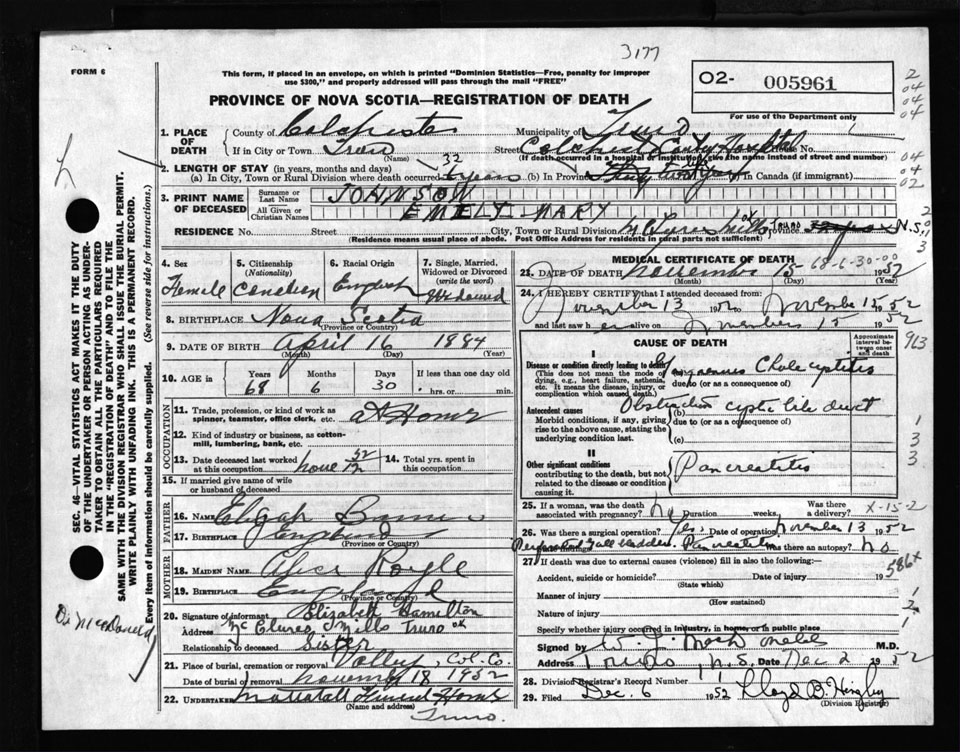 3177
FORM 6
This form, if placed in an envelope, on which is printed "Dominion Statistics—Free, penalty for improper
use $300," and properly addressed will pass through the mail "FREE"
O2- 005961
PROVINCE OF NOVA SCOTIA—REGISTRATION OF DEATH
For use of the Department only
2
04
04
04
04
04
02
1. PLACE OF DEATH
County of Colchester Municipality of Truro
If in City or Town Truro Street Colchester County Hospital House No.
(Name) (If death occurred in a hospital or institution, give the name instead of street and number)
2. LENGTH OF STAY (in years, months and days)
(a) In City, Town or Rural Division where death occurred 32 years (b) In Province (c) In Canada (if immigrant)
3. PRINT NAME OF DECEASED
Surname or Last Name JOHNSON
All Given or Christian Names EMILY MARY
RESIDENCE No. Street City, Town or Rural Division McClures Mills Truro Province N.S.
(Residence means usual place of abode. Post Office Address for residents in rural parts not sufficient)
4. Sex
Female
5. Citizenship
(Nationality)
Canadian
6. Racial Origin
English
7. Single, Married, Widowed or Divorced
(write the word)
Widowed
8. BIRTHPLACE Nova Scotia
(Province or Country)
9. DATE OF BIRTH April 16 1884
(Month) (Day) (Year)
10. AGE in
Years Months Days If less than one day old
68 6 30 hrs. or min.
OCCUPATION
11. Trade, profession, or kind of work as spinner, teamster, office clerk, etc. at Home
12. Kind of industry or business, as cotten-mill, lumbering, bank, etc.
13. Date deceased last worked at this occupation
14. Total yrs. spent in this occupation
15. If married give name of wife or husband of deceased
FATHER
16. NAME Elijah
17. BIRTHPLACE England
(Province or Country)
MOTHER
18. MAIDEN NAME Alice
19. BIRTHPLACE England
(Province or Country)
20. Signature of informant Elizabeth Hamilton
Address McClures Mills Truro ok
Relationship to deceased Sister
21. Place of burial, cremation or removal Valley, Col. Co.
Date of burial or removal November 18 1952
22. UNDERTAKER Mattatall Funeral Home
(Name and address)
Truro.
MEDICAL CERTIFICATE OF DEATH
68-6-30-00
23. DATE OF DEATH November 15 1952
(Month) (Day) (Year)
24. I HEREBY CERTIFY that I attended deceased from:
November 13 1952 to November 15 1952
and last saw her alive on November 15 1952
963
CAUSE OF DEATH
Approximate interval between onset and death
I
Disease or condition directly leading to death
(This does not mean the mode of dying, e.g., heart failure, asthenia, etc. It means the disease, injury, or complication which caused death.)
(a) Cholecystitis
due to (or as a consequence of)
Antecedent causes
Morbid conditions, if any, giving rise to the above cause, stating the underlying condition last.
(b) Obstruction cystic bile duct
due to (or as a consequence of)
(c)
II
Other significant conditions
contributing to the death, but not related to the disease or condition causing it.
Pancreatitis
1
3
3
25. If a woman, was the death associated with pregnancy? No Duration weeks. Was there a delivery?
X-15-2
26. Was there a surgical operation? Yes. Date of operation November 13 1952
Perforated Gall bladder. Pancreatitis Was there an autopsy? no
27. If death was due to external causes (violence) fill in also the following:
586
Accident, suicide or homicide? Date of injury 19
(State which)
Manner of injury
(How sustained)
Nature of injury
Specify whether injury occurred in industry, in home, or in public place
Signed by M.D.
Address Truro, N.S. Date Dec 2 1952
28. Division Registrar's Record Number
29. Filed Dec. 6 1952 Lloyd B.
(Division Registrar)
SEC. 46—VITAL STATISTICS ACT MAKES IT THE DUTY
OF THE UNDERTAKER OR PERSON ACTING AS UNDER-
TAKER TO OBTAIN ALL THE PARTICULARS REQUIRED
IN THE "REGISTRATION OF DEATH" AND TO FILE THE
SAME WITH THE DIVISION REGISTRAR WHO SHALL ISSUE THE BURIAL PERMIT.
WRITE PLAINLY WITH UNFADING INK. THIS IS A PERMANENT RECORD.
Every item of information should be carefully supplied. (See reverse side for instructions.)
Dr McDonald